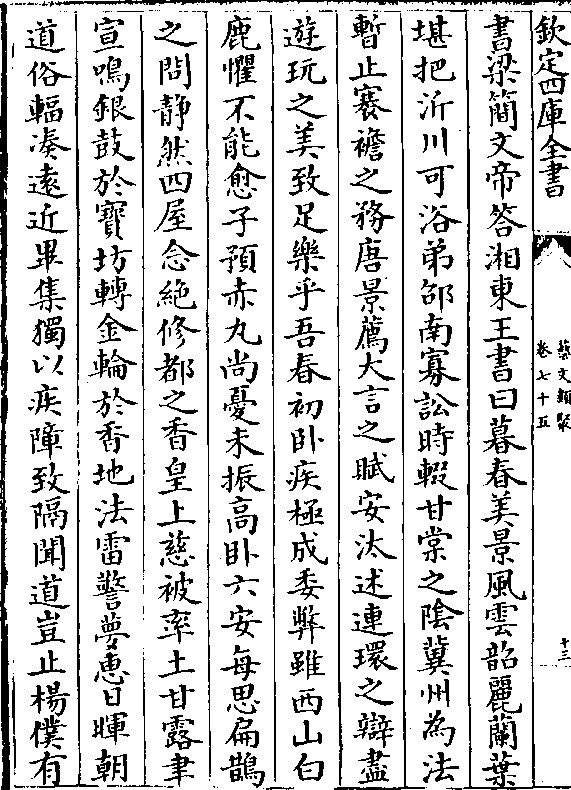 欽定四庫全書
藝文類聚
卷七十五
十三
書梁簡文帝答湘東王書曰暮春美景風雲韶麗蘭葉
堪把沂川可浴弟邵南寡訟時輟甘棠之陰冀州為法
暫止褰襜之務唐景薦大言之賦安汰述連環之辯盡
遊玩之美致足樂乎吾春初卧疾極成委弊雖西山白
鹿懼不能愈子預赤丸尚憂未振高卧六安每思扁鵲
之問静然四屋念絶修都之香皇上慈被率土甘露聿
宣鳴銀鼓於寶坊轉金輪於香地法雷警夢惠日暉朝
道俗輻凑遠近畢集獨以疾障致隔聞道豈止楊僕有